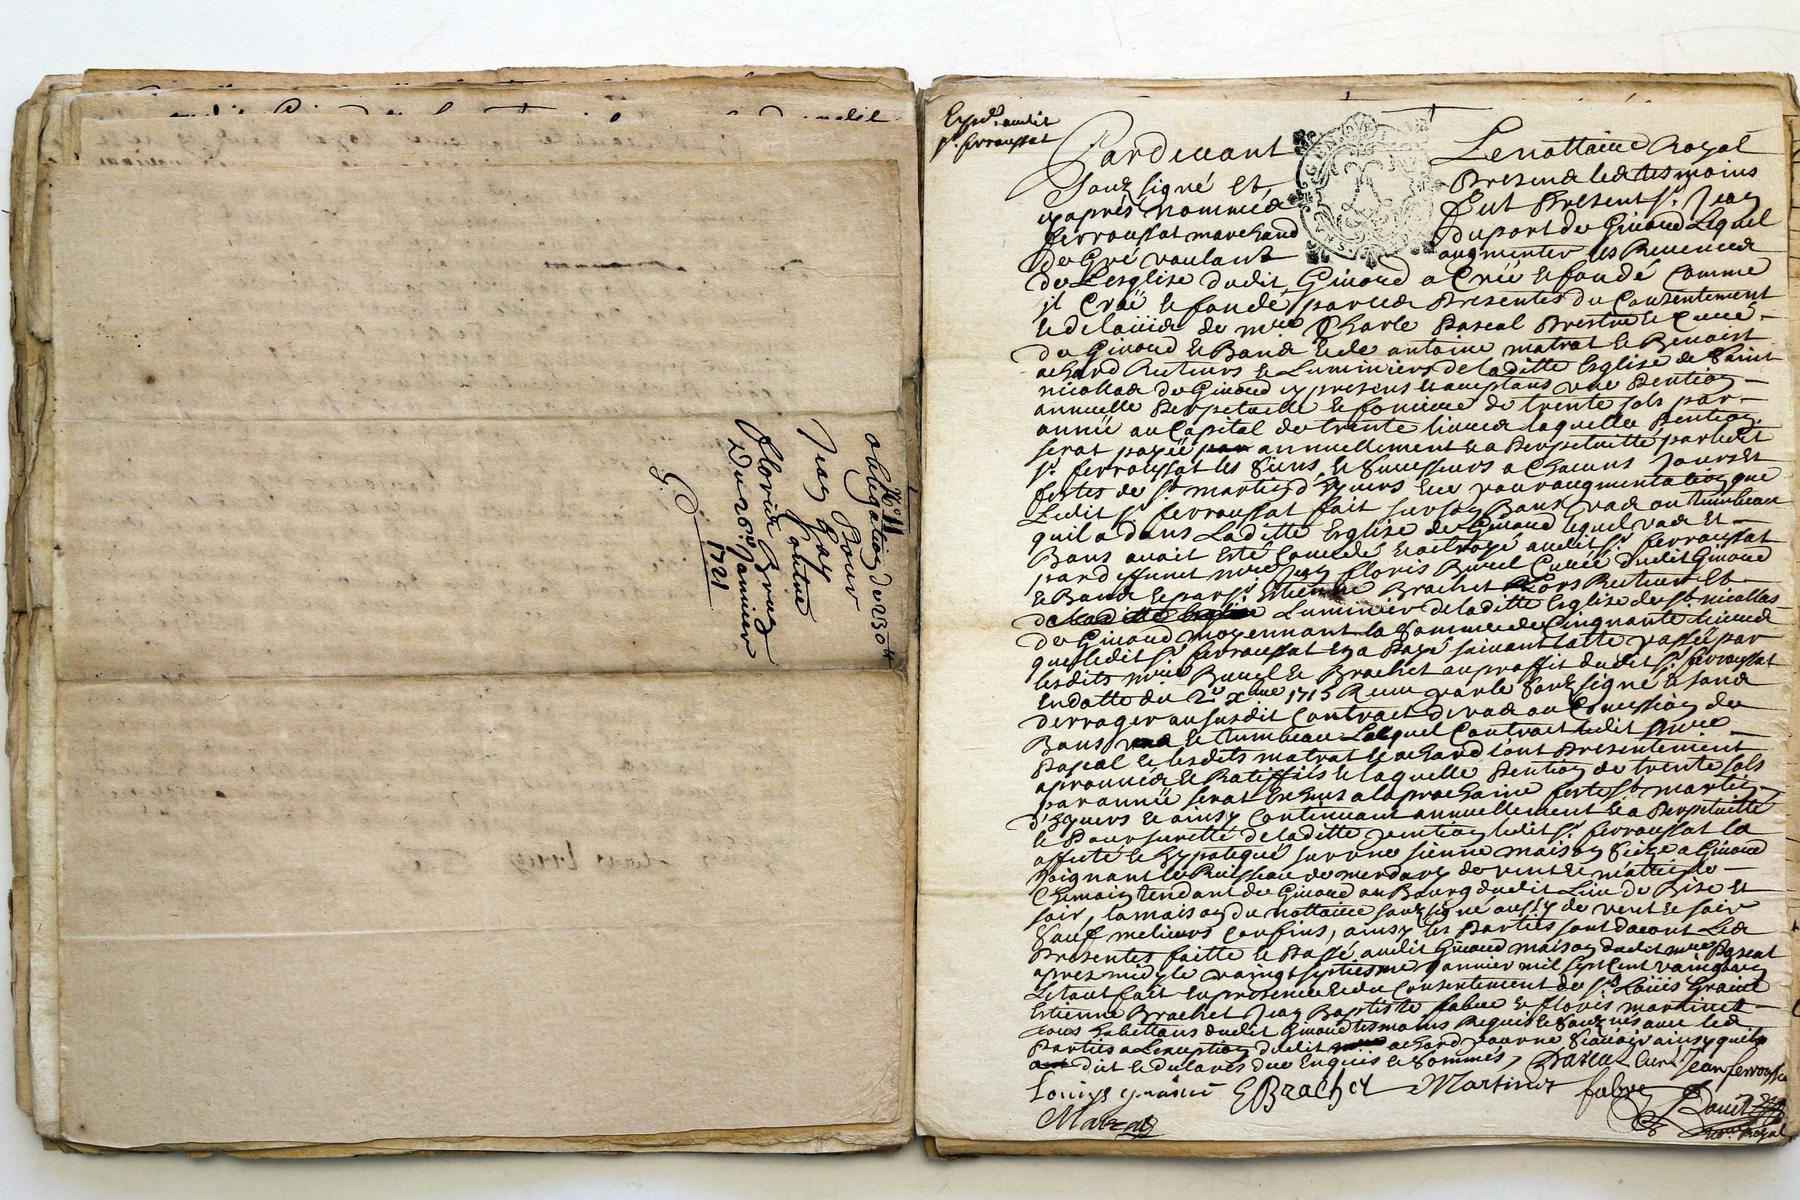 N.º 11
obligation de 230ᵗᵗ
Pour
Jean Gay
Contre
Floris Brued
Du 26ᵉ Janvier
1721
G.
Expd. audit
sʳ. ferroussat
Pardevant Le nottaire Royal
Souzsigné et Presens les tesmoins
cyaprés nommes fut Present sʳ. Jean
ferroussat marchand du port de Giraud Lequel
de Gré voulant augmenter les Revenues
de L'esglise dudit Giraud a Creé et fondé Comme
il Creë et fonde par ces Presentes du Consentement
et de de mʳᵉ Charle Pascal Prestre et Curé
de Giraud et Bans et de antoine matrat et Benoist
achard Recteurs et Luminiers de laditte Esglise de Saint
nicollas de Giraud cy presens et acceptans une Pention
annuelle Perpetuelle et fonciere de trente sols par
année au Capital de trente livres laquelle Pention
serat payée annuellement et a Perpetuitté par ledit
sʳ. ferroussat les siens et Successeurs a Chacuns Jours et
festes de sᵗ martin d'hyvers et ce pour augmentation que
Ledit sʳ. ferroussat fait sur son Banc vas ou tumbeau
quil a dans Laditte Esglise de Giraud lequel vas et
Banc avait esté Concedé et octroyé audit sʳ. ferroussat
par deffunct mʳᵉ Jean floris Buuel Curé dudit Giraud
et Bans et par sʳ. Estienne Brachet Lors Recteur et
Luminier de laditte Esglise de sᵗ. nicollas
de Giraud moyennant la Somme de Cinquante livres
que ledit sʳ. ferroussat en a Payé suivant lacte passé par
lesdits mʳᵉ Buuel et Brachet au proffit dudit sʳ. ferroussat
en datte du 2ᵉ xbre 1715 Receu par le Souzsigné et sans
derroger au susdit Contract de vas ou Concession de
Banc et tumbeau Lequel Contract ledit mʳᵉ
Pascal et lesdits matrat et achard ont Presentement
aprouvée et Ratiffié et laquelle Pention de trente sols
par année serat a la prochaine feste sᵗ martin
d'hyvers et ainsy Continuant annuellement et a Perpetuitté
et Pour suretté de laditte pention ledit sʳ. ferroussat la
affecté et hypotequé sur une sienne maison size a Giraud
Joignant le Ruisseau de merdary de vent et matin le
Chemain tendant de Giraud au Bourg dudit Lieu de Bise et
soir, la maison du nottaire souzsigné aussy de vent et soir
sauf melieurs Confins, ainsy les Parties sont dacort Les
Presentes faitte et Passé audit Giraud maison dudit mʳᵉ Pascal
apres midy le vaingtseptiesme Janvier mil sept cent
Letout fait en presence et du Consentement de sʳ. Loüis Graine
Estienne Brachet Jean Baptiste fabre et floris martinet
tous habittans dudit Giraud tesmoins Requis et souzsignés avec les
Parties a Lexception dudit achard pour ne scavoir ainsy quil
dit et declare de ce Enquis et sommés, Pascal Curé Jean ferroussat
Louiys graine EBrachet Martinet fabre
Matrat noʳᵉ Royal